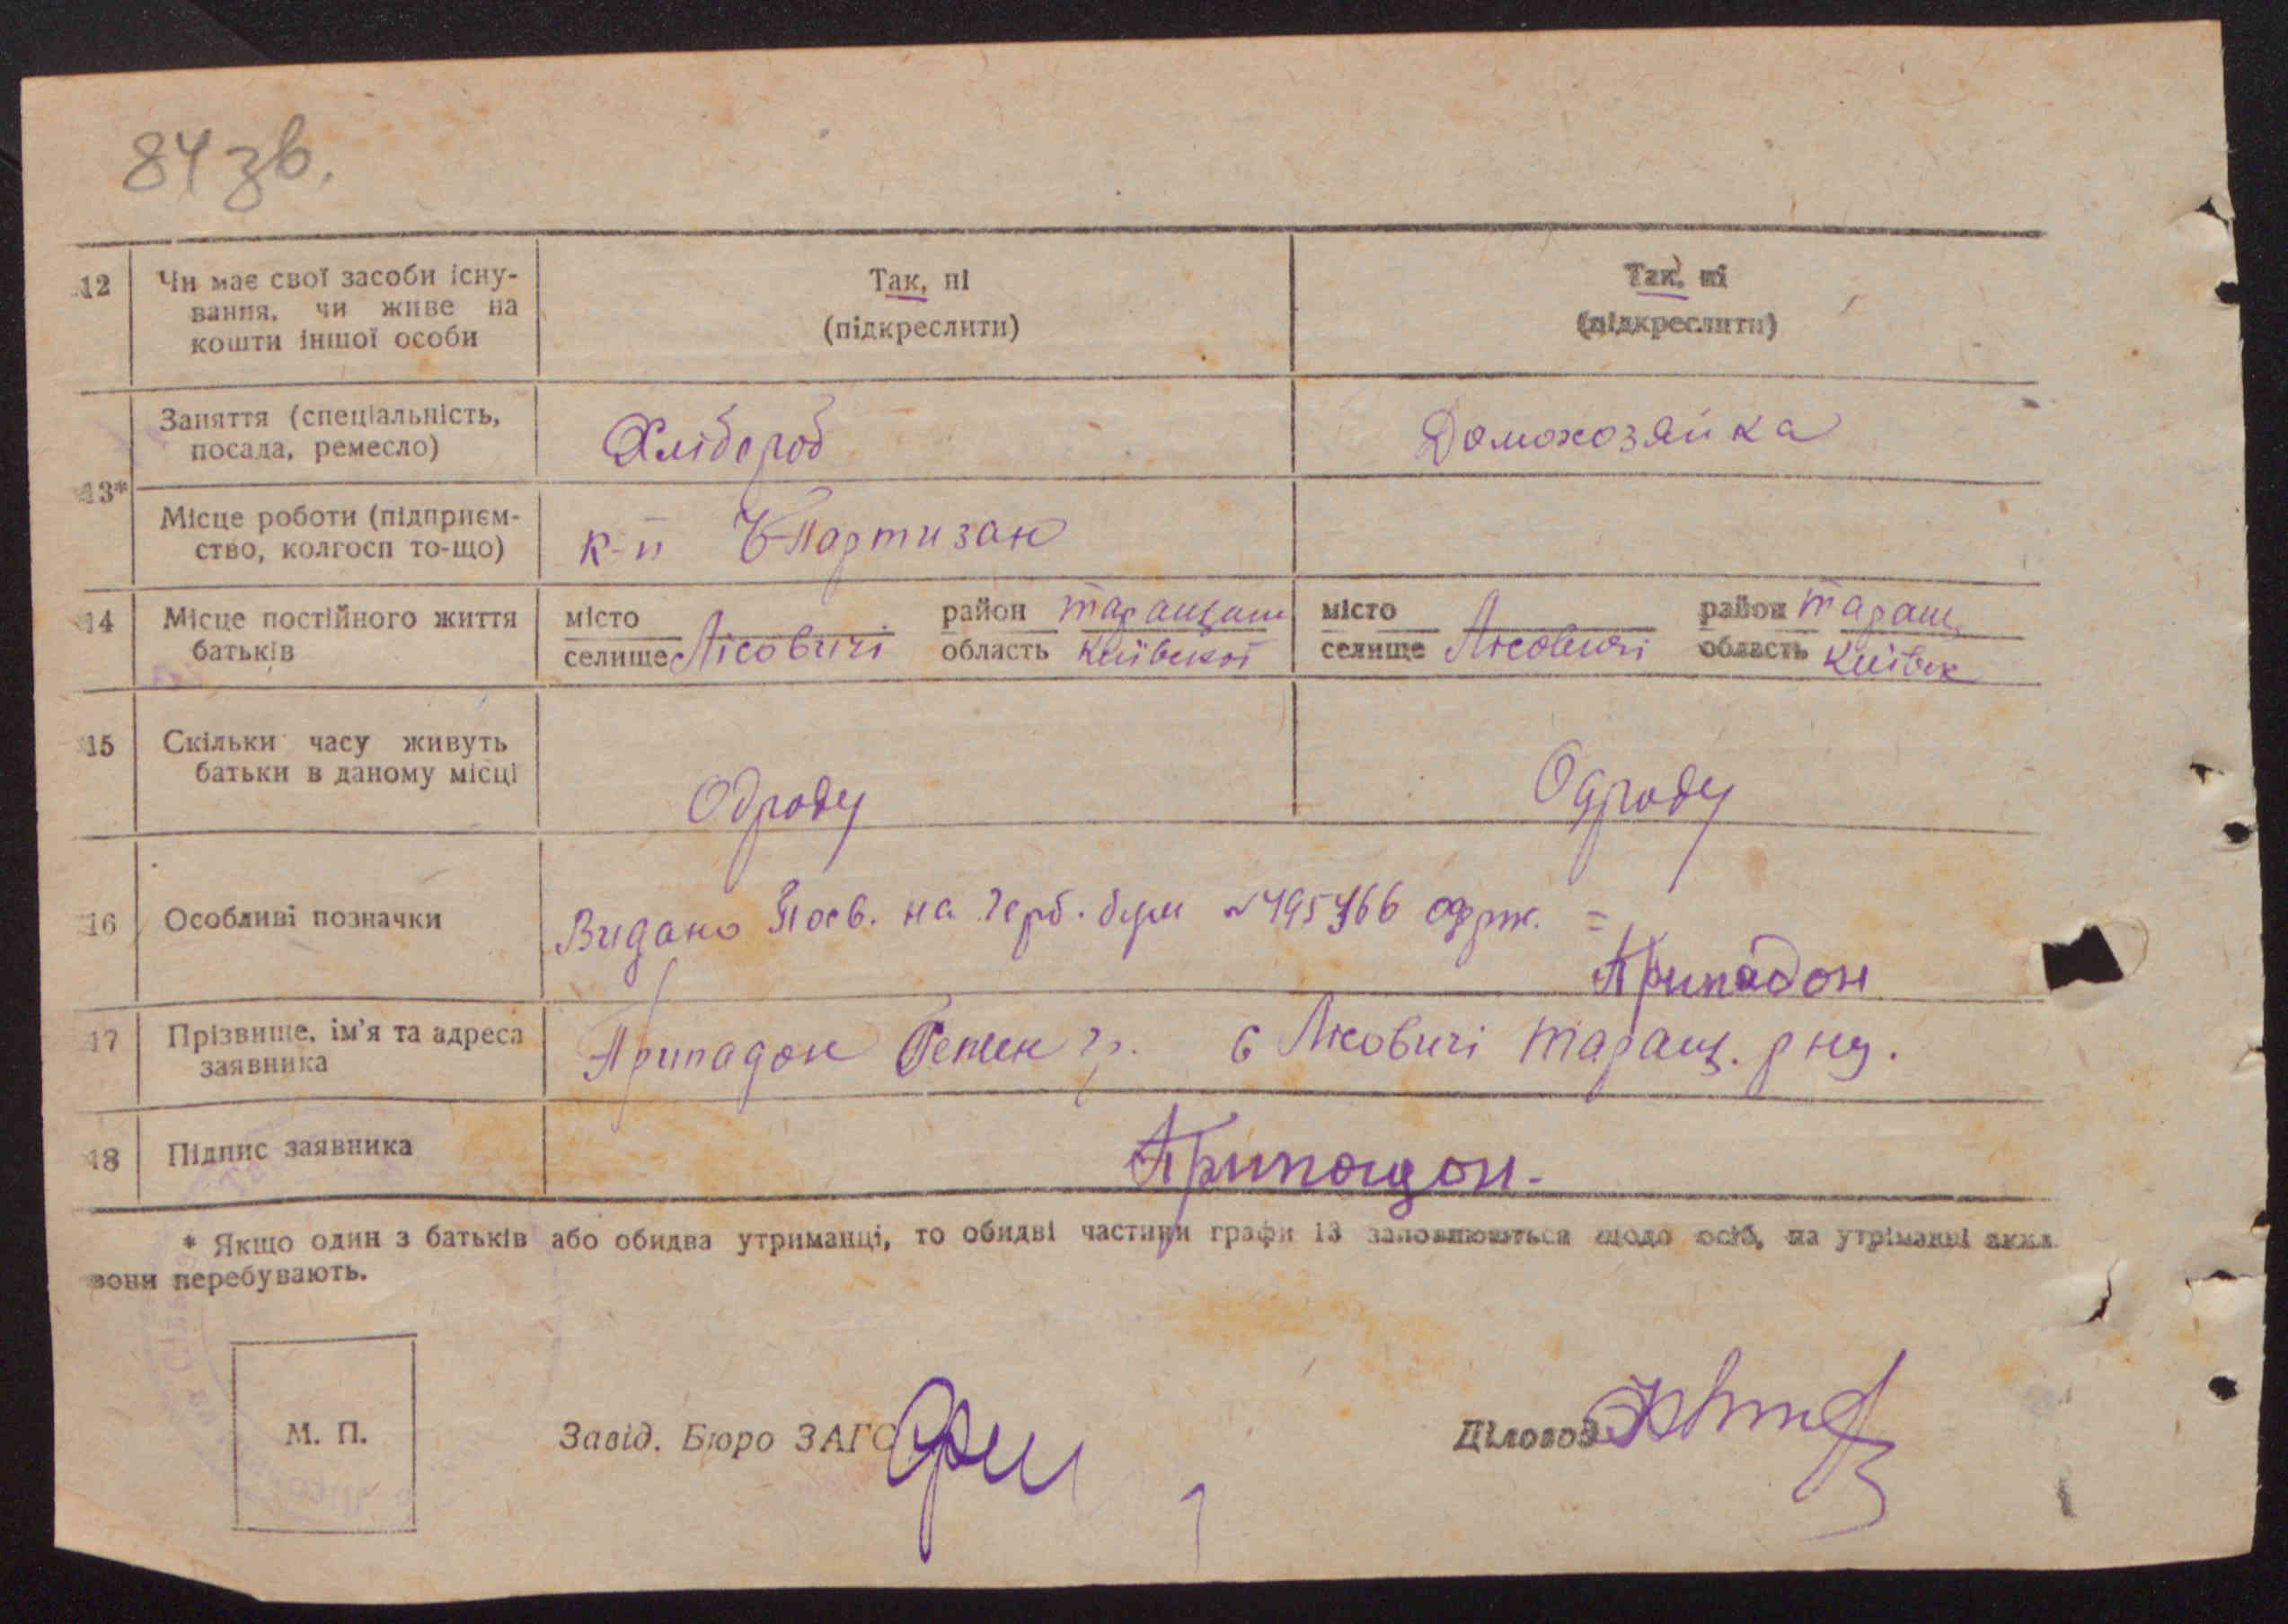 84 зв.
12 Чи має свої засоби існу-
вання, чи живе на
кошти іншої особи
Так, ні
(підкреслити)
Так, ні
(підкреслити)
13*
Заняття (спеціальність,
посада, ремесло)
Хлібороб
Домохозяйка
Місце роботи (підприєм-
ство, колгосп то-що)
к-п Ч Партизан
14 Місце постійного життя
батьків
місто
селище Лісовичі
район Таращан
область Київської
місто
селище Лісовичі
район Таращ
область Київськ
15 Скільки часу живуть
батьки в даному місці
Одроду
Одроду
16 Особливі позначки
Видано Посв. на герб. бум одрж. =
Припадон
17 Прізвище, ім'я та адреса
заявника
Припадон гр. с Лісовичі Таращ. рну.
18 Підпис заявника
Припадон.
* Якщо один з батьків або обидва утриманці, то обидві частини графи 13 заповнюються щодо осіб, на утріманні яких
вони перебувають.
М. П.
Завід. Бюро ЗАГС
Діловод